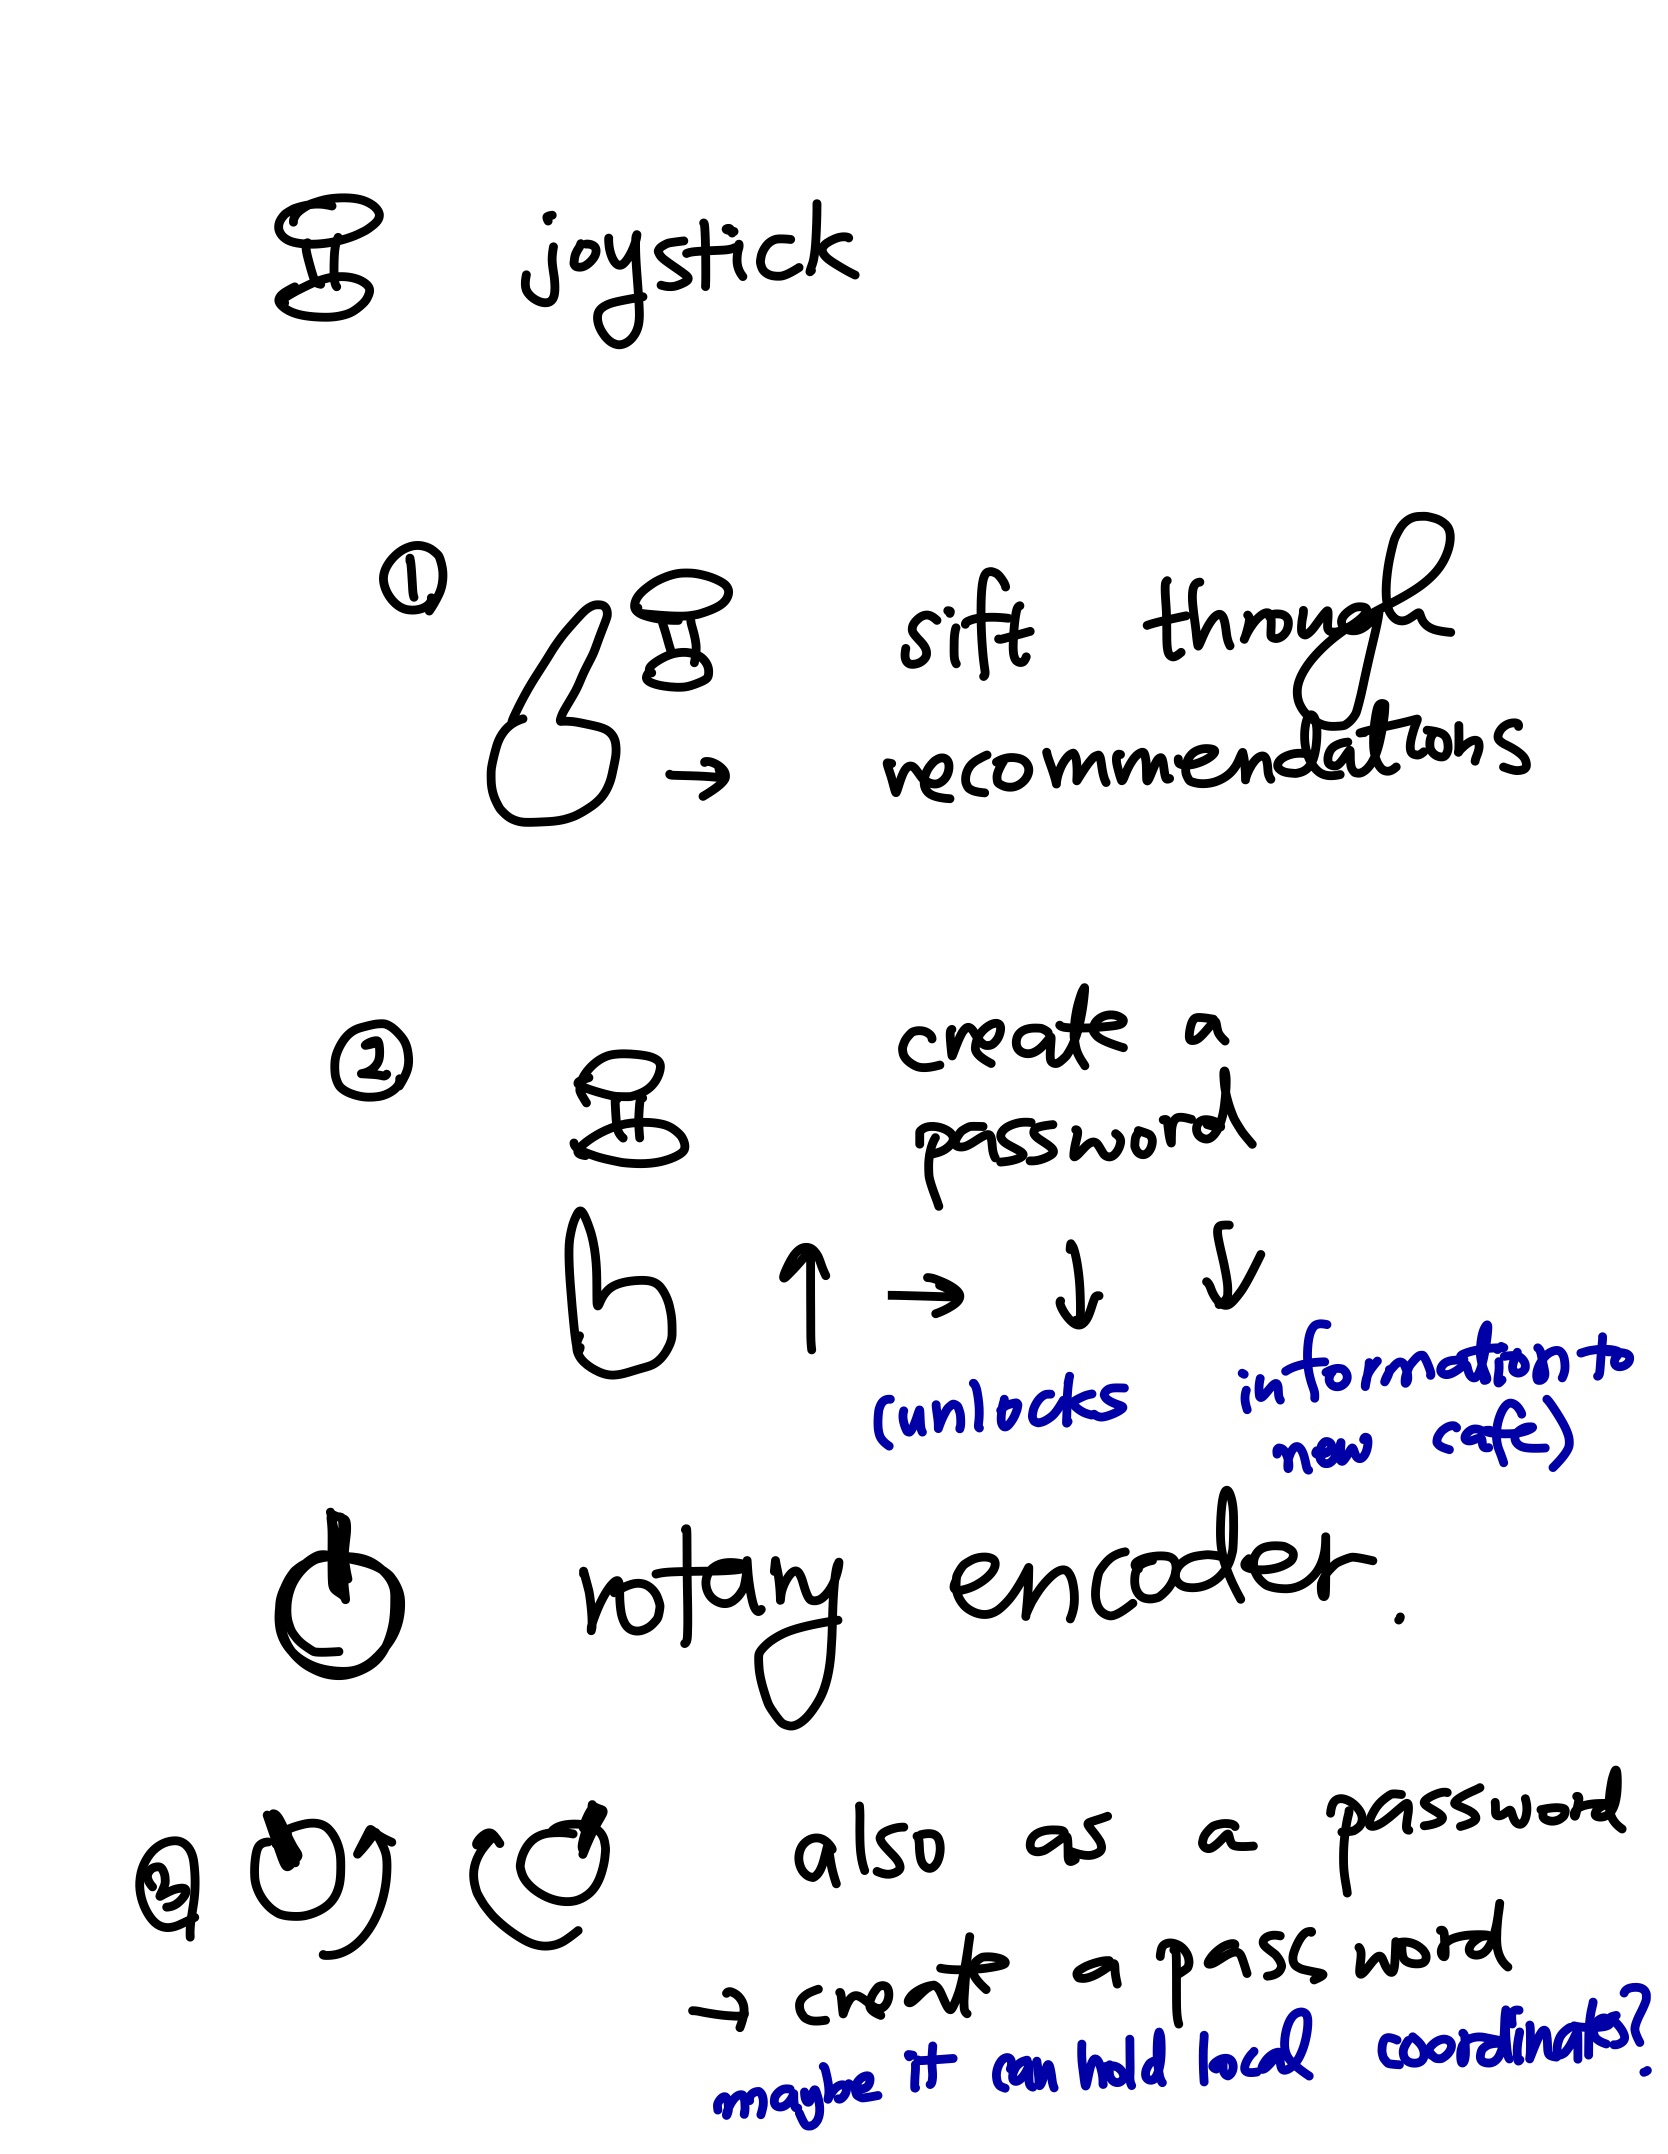 joystick
① sift through
→ recommendations
② create a
password
↑ → ↓ ↓
(unlocks information to
new cafe)
rotary encoder.
③ also as a password
→ create a password
maybe it can hold local coordinates?